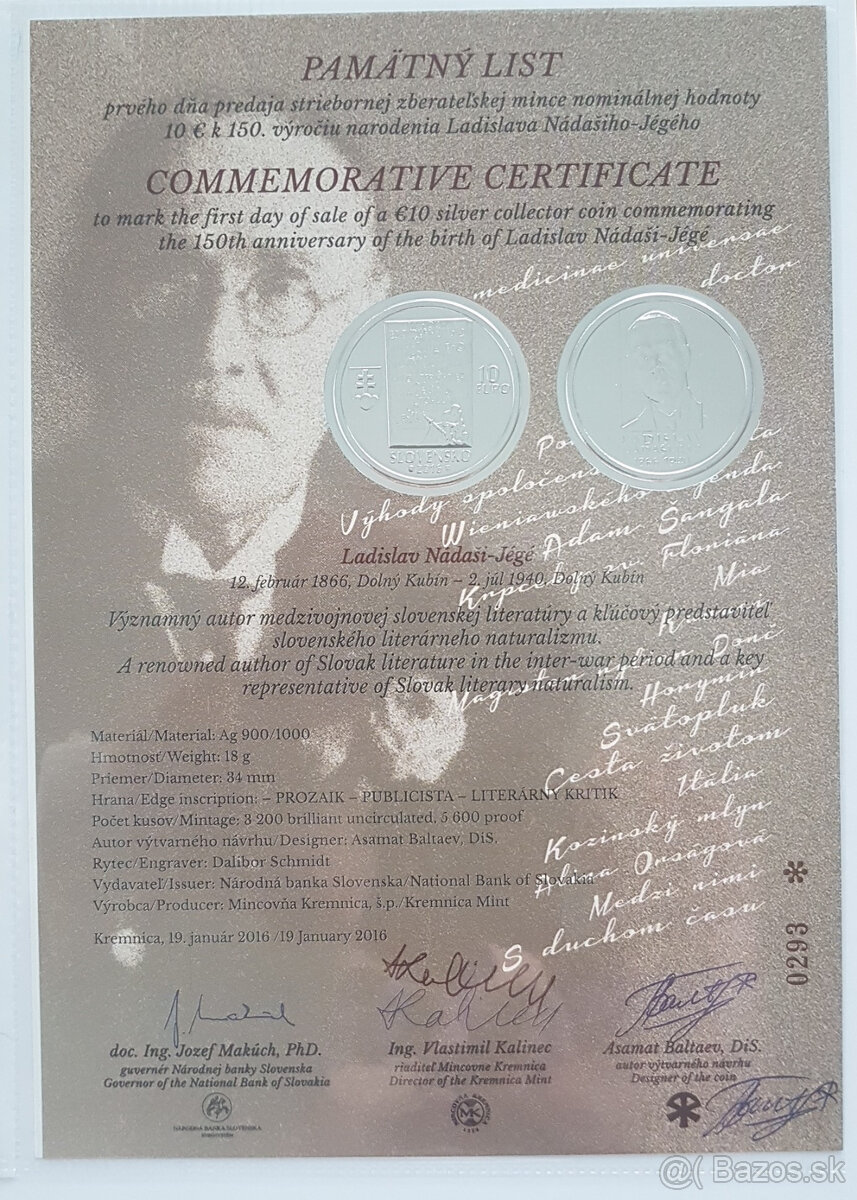 PAMÄTNÝ LIST
prvého dňa predaja striebornej zberateľskej mince nominálnej hodnoty
10 € k 150. výročiu narodenia Ladislava Nádašiho-Jégého
COMMEMORATIVE CERTIFICATE
to mark the first day of sale of a €10 silver collector coin commemorating
the 150th anniversary of the birth of Ladislav Nádaši-Jégé
medicinae universae
doctor
10
EURO
SLOVENSKO
2016
LADISLAV
Výhody
Wieniawského legenda
Adam Šangala
Floriána
Mia
Magister
Donč
Horymír
Svätopluk
Cesta životom
Itália
Kozinský mlyn
Alina Orságová
Medzi nimi
S duchom času
Ladislav Nádaši-Jégé
12. február 1866, Dolný Kubín – 2. júl 1940, Dolný Kubín
Významný autor medzivojnovej slovenskej literatúry a kľúčový predstaviteľ
slovenského literárneho naturalizmu.
A renowned author of Slovak literature in the inter-war period and a key
representative of Slovak literary naturalism.
Materiál/Material: Ag 900/1000
Hmotnosť/Weight: 18 g
Priemer/Diameter: 34 mm
Hrana/Edge inscription: – PROZAIK – PUBLICISTA – LITERÁRNY KRITIK
Počet kusov/Mintage: 3 200 brilliant uncirculated, 5 600 proof
Autor výtvarného návrhu/Designer: Asamat Baltaev, DiS.
Rytec/Engraver: Dalibor Schmidt
Vydavateľ/Issuer: Národná banka Slovenska/National Bank of Slovakia
Výrobca/Producer: Mincovňa Kremnica, š.p./Kremnica Mint
Kremnica, 19. január 2016 /19 January 2016
0293
doc. Ing. Jozef Makúch, PhD.
guvernér Národnej banky Slovenska
Governor of the National Bank of Slovakia
NÁRODNÁ BANKA SLOVENSKA
EUROSYSTÉM
Ing. Vlastimil Kalinec
riaditeľ Mincovne Kremnica
Director of the Kremnica Mint
MINCOVŇA KREMNICA
MK
1328
Asamat Baltaev, DiS.
autor výtvarného návrhu
Designer of the coin
@( Bazos.sk